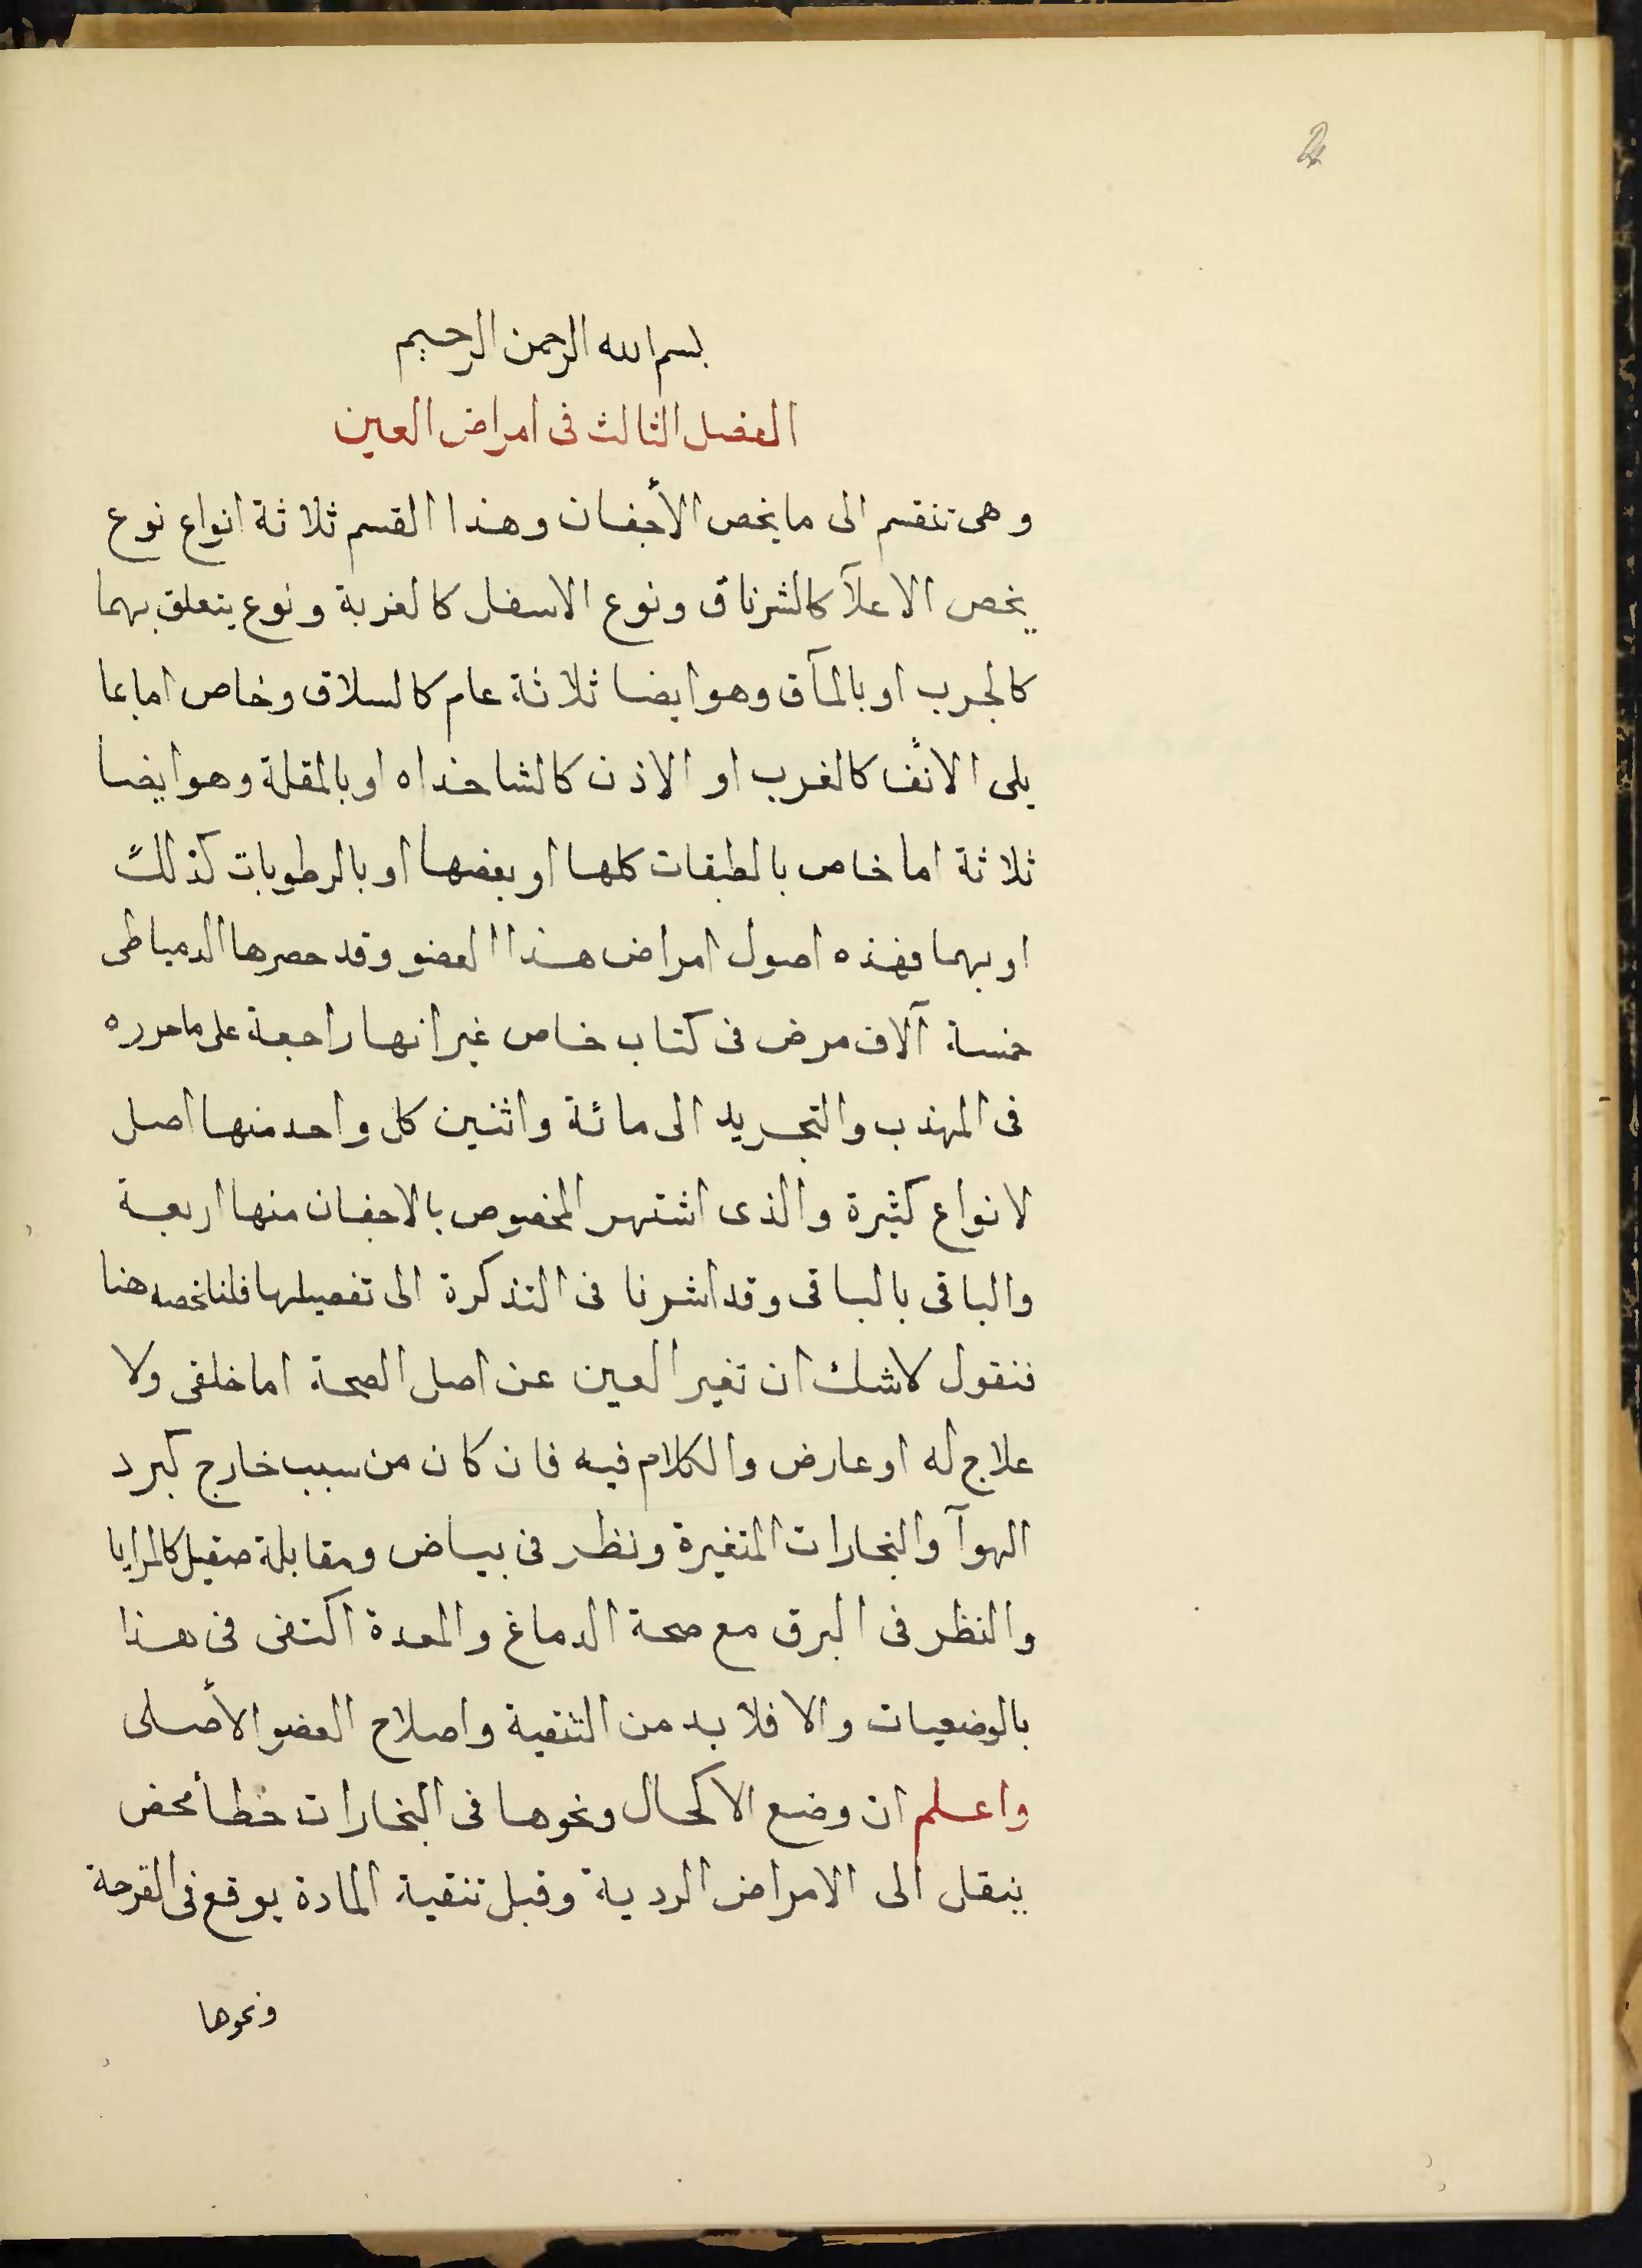 2
بسم الله الرحمن الرحيم
الفصل الثالث فى امراض العين
وهى تنقسم الى ما يخص الأجفان وهذا القسم ثلاثة انواع نوع
يخص الاعلآ كالشرناق ونوع الاسفل كالغربة ونوع يتعلق بهما
كالجرب او بالمآق وهو ايضا ثلاثة عام كالسلاق وخاص اما بما
يلى الانف كالغرب او الاذن كالشاخداه او بالمقلة وهو ايضا
ثلاثة اما خاص بالطبقات كلها او بعضها او بالرطوبات كذلك
او بهما فهذه اصول امراض هذا العضو وقد حصرها الدمياطى
خمسة آلاف مرض فى كتاب خاص غير انها راجعة على ما حرره
فى المهذب والتجريد الى مائة واثنين كل واحد منها اصل
لانواع كثيرة والذى اشتهر المخصوص بالاجفان منها اربعة
والباقى بالباقى وقد اشرنا فى التذكرة الى تفصيلها فلنلخصه هنا
فنقول لاشك ان تغير العين عن اصل الصحة اما خلقى ولا
علاج له او عارض والكلام فيه فان كان من سبب خارج كبرد
الهوآ والبخارات المتغيرة ونظر فى بياض ومقابلة صقيل كالمرايا
والنظر فى البرق مع صحة الدماغ والمعدة اكتفى فى هذا
بالوضعيات والا فلا بد من التنقية واصلاح العضو الأصلى
واعلم ان وضع الاكحال ونحوها فى البخارات خطأ محض
ينقل الى الامراض الردية وقبل تنقية المادة يوقع فى القرحة
ونحوها